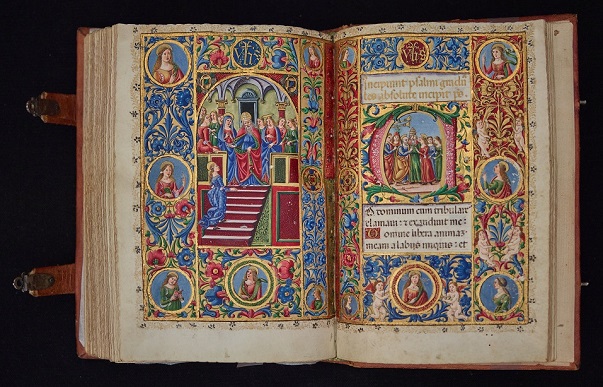 yhs
yhs
incipiunt psalmi gradu
les absolute incipit ps.
D dominum cum tribulare
clamaui: & exaudiuit me:
Domine libera animaz
meam a labijs iniquis: et